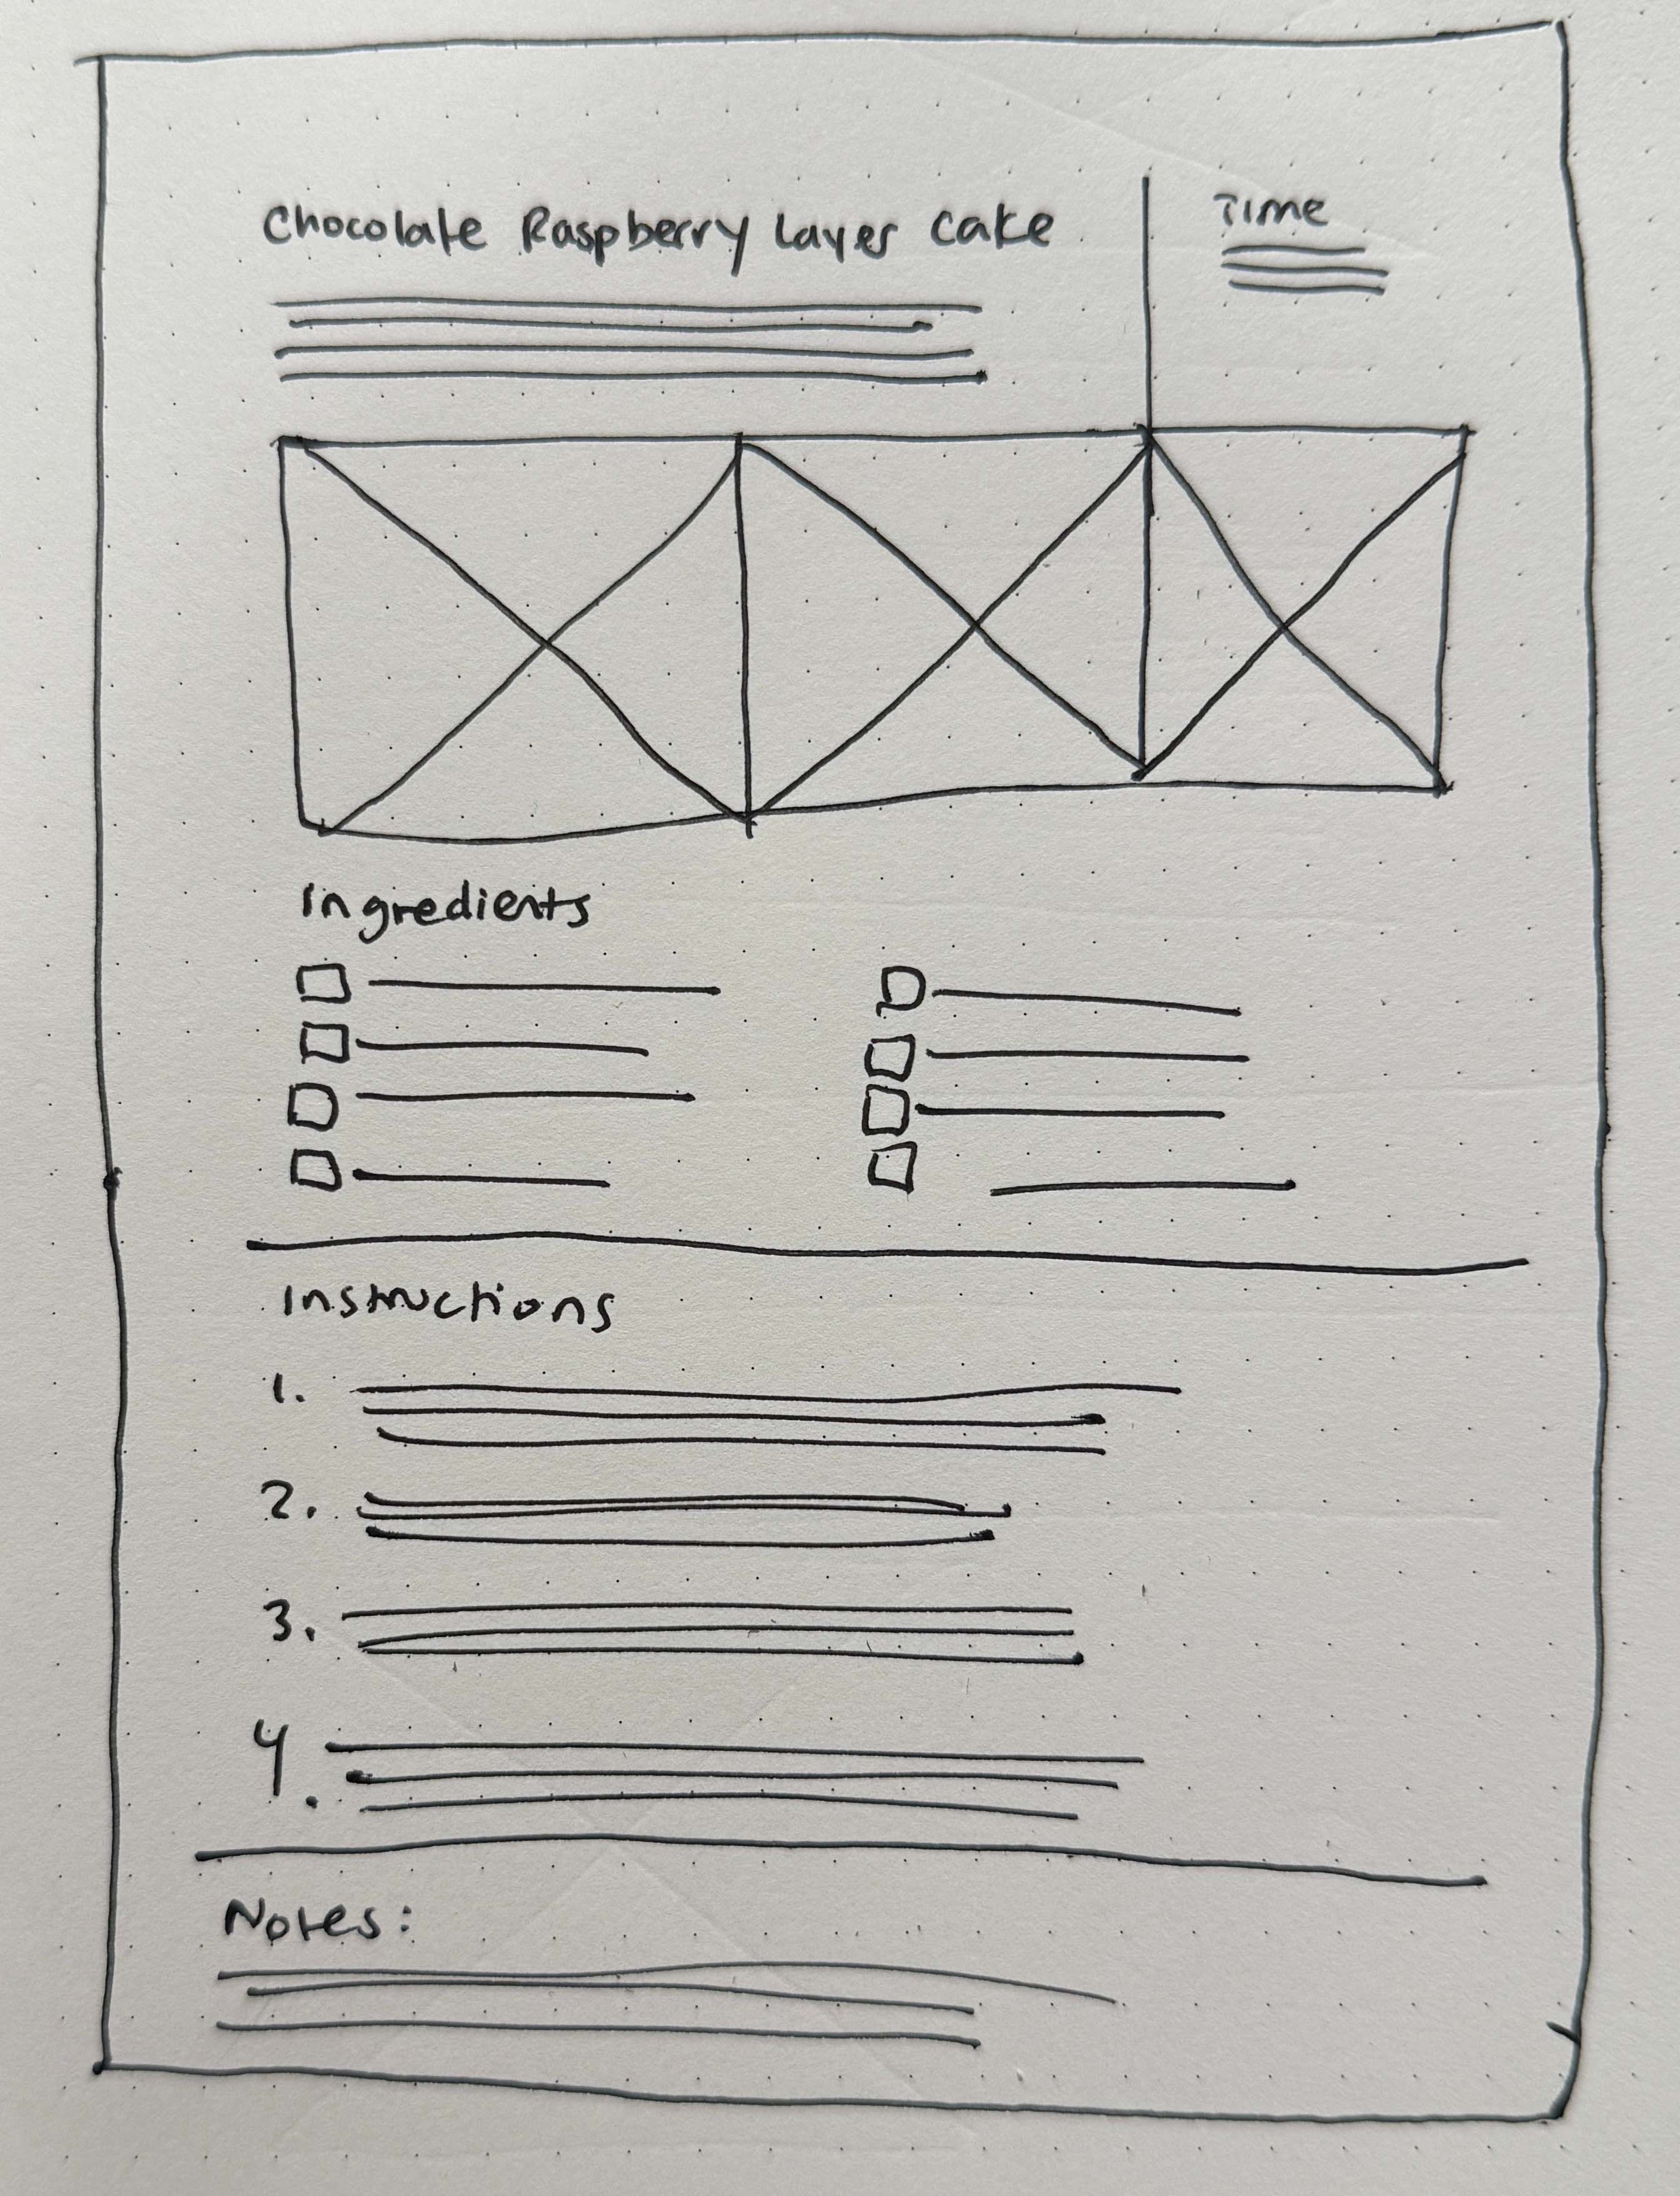 Chocolate Raspberry Layer Cake
Time
Ingredients
Instructions
1.
2.
3.
4.
Notes: